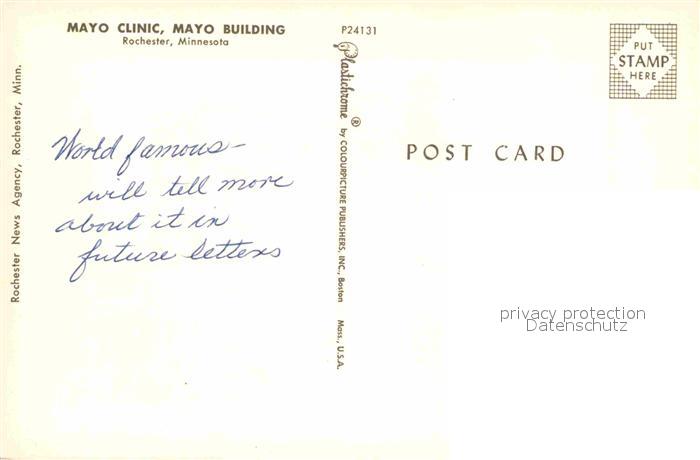 MAYO CLINIC, MAYO BUILDING
Rochester, Minnesota
P24131
PUT
STAMP
HERE
Rochester News Agency, Rochester, Minn.
Plastichrome ® by COLOURPICTURE PUBLISHERS, INC., Boston Mass., U.S.A.
POST CARD
World famous—
will tell more
about it in
future letters
privacy protection
Datenschutz